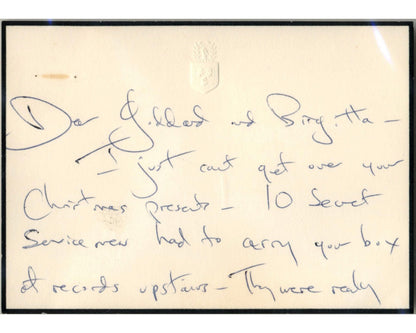 Dear Goddard and Birgitta —
I just can't get over your
Christmas presents — 10 Secret
Service men had to carry your box
of records upstairs — They were really